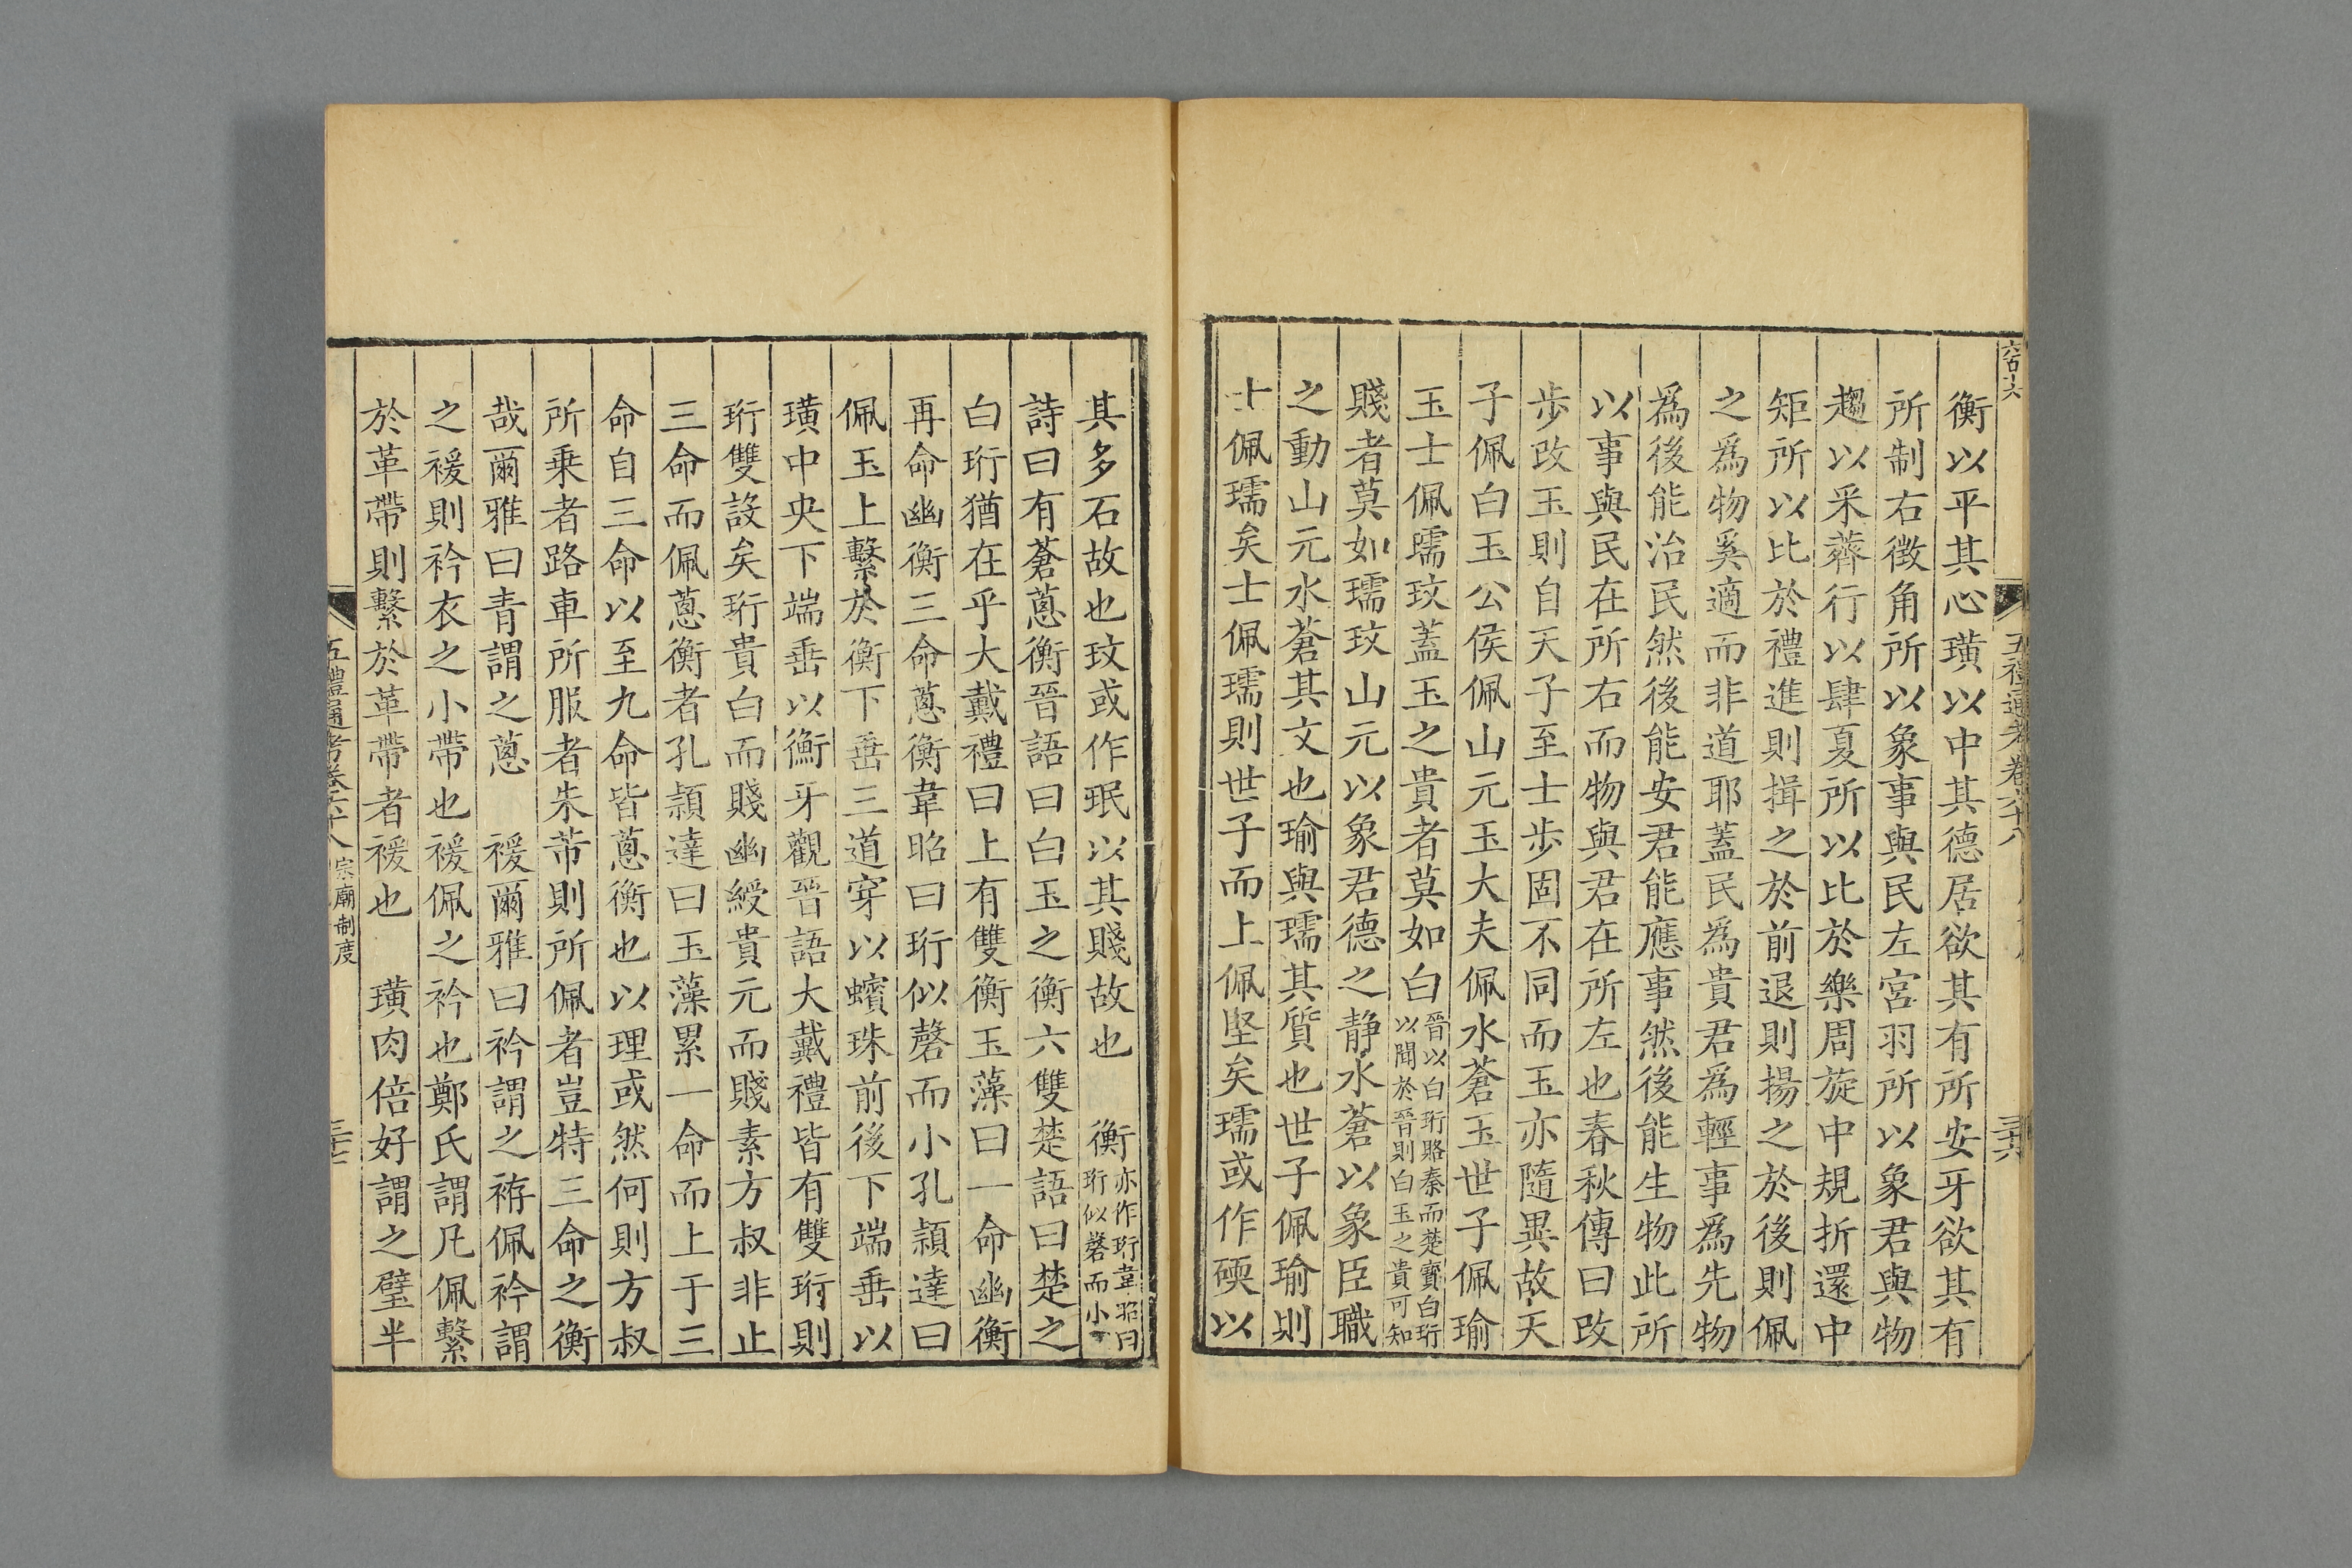 五禮通考卷六十八
衡以平其心璜以中其德居欲其有所安牙欲其有
所制右徵角所以象事與民左宮羽所以象君與物
趨以采薺行以肆夏所以比於樂周旋中規折還中
矩所以比於禮進則揖之於前退則揚之於後則佩
之為物奚適而非道耶蓋民為貴君為輕事為先物
爲後能治民然後能安君能應事然後能生物此所
以事與民在所右而物與君在所左也春秋傳曰改
步改玉則自天子至士步固不同而玉亦隨異故天
子佩白玉公侯佩山元玉大夫佩水蒼玉世子佩瑜
玉士佩瓀玟蓋玉之貴者莫如白晉以白珩賂秦而楚寶白珩以聞於晉則白玉之貴可知
賤者莫如瓀玟山元以象君德之靜水蒼以象臣職
之動山元水蒼其文也瑜與瓀其質也世子佩瑜則
士佩瓀矣士佩瓀則世子而上佩堅矣瓀或作碝以
其多石故也玟或作珉以其賤故也　衡亦作珩韋昭曰珩似磬而小
詩曰有蒼蔥衡晉語曰白玉之衡六雙楚語曰楚之
白珩猶在乎大戴禮曰上有雙衡玉藻曰一命幽衡
再命幽衡三命蔥衡韋昭曰珩似磬而小孔穎達曰
佩玉上繫於衡下垂三道穿以蠙珠前後下端垂以
璜中央下端垂以衡牙觀晉語大戴禮皆有雙珩則
珩雙設矣珩貴白而賤幽綬貴元而賤素方叔非止
三命而佩蔥衡者孔穎達曰玉藻累一命而上于三
命自三命以至九命皆蔥衡也以理或然何則方叔
所乘者路車所服者朱芾則所佩者豈特三命之衡
哉爾雅曰青謂之蔥　褑爾雅曰衿謂之袸佩衿謂
之褑則衿衣之小帶也褑佩之衿也鄭氏謂凡佩繫
於革帶則繫於革帶者褑也　璜肉倍好謂之璧半
五禮通考卷六十八 宗廟制度